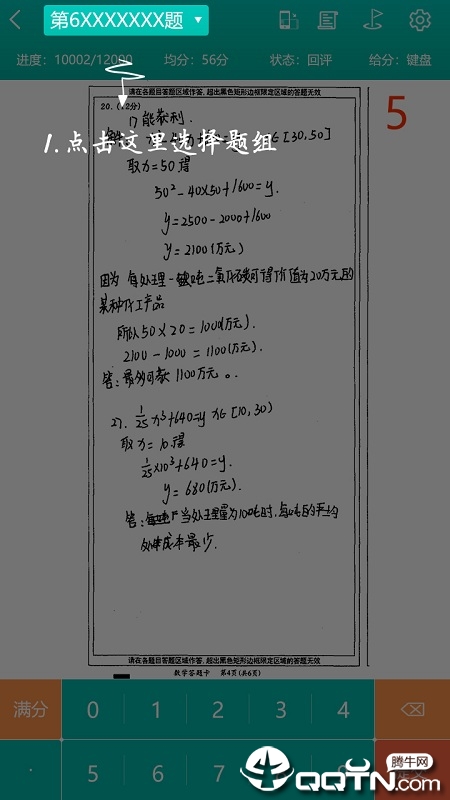 第6XXXXXXX题
进度：10002/12000 均分：56分 状态：回评 给分：键盘
请在各题目答题区域作答，超出黑色矩形边框限定区域的答题无效
20.（12分）
5
1)能获利.
∈[30,50]
1.点击这里选择题组
取x=50得
50²-40×50+1600=y.
y=2500-2000+1600
y=2100(万元)
因为 每处理一吨二氧化碳可得价值为20万元的
某种化工产品
所以50×20=1000(万元).
2100-1000=1100(万元).
答:最多可获1100万元。
2). 1/25 x³+640=y x∈[10,30)
取x=10.得
1/25×10³+640=y.
y=680(万元).
答: 当处理量为10吨时,每吨的平均
处理成本最少.
请在各题目答题区域作答，超出黑色矩形边框限定区域的答题无效
数学答题卡 第4页(共6页)
满分 0 1 2 3 4
· 5 6 7
腾牛网
QQTN.com